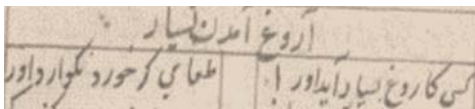 آروغ آمدن بسیار
کسی کاروغ بسیار آید اورا
طعامی که خورد نکوارد اور